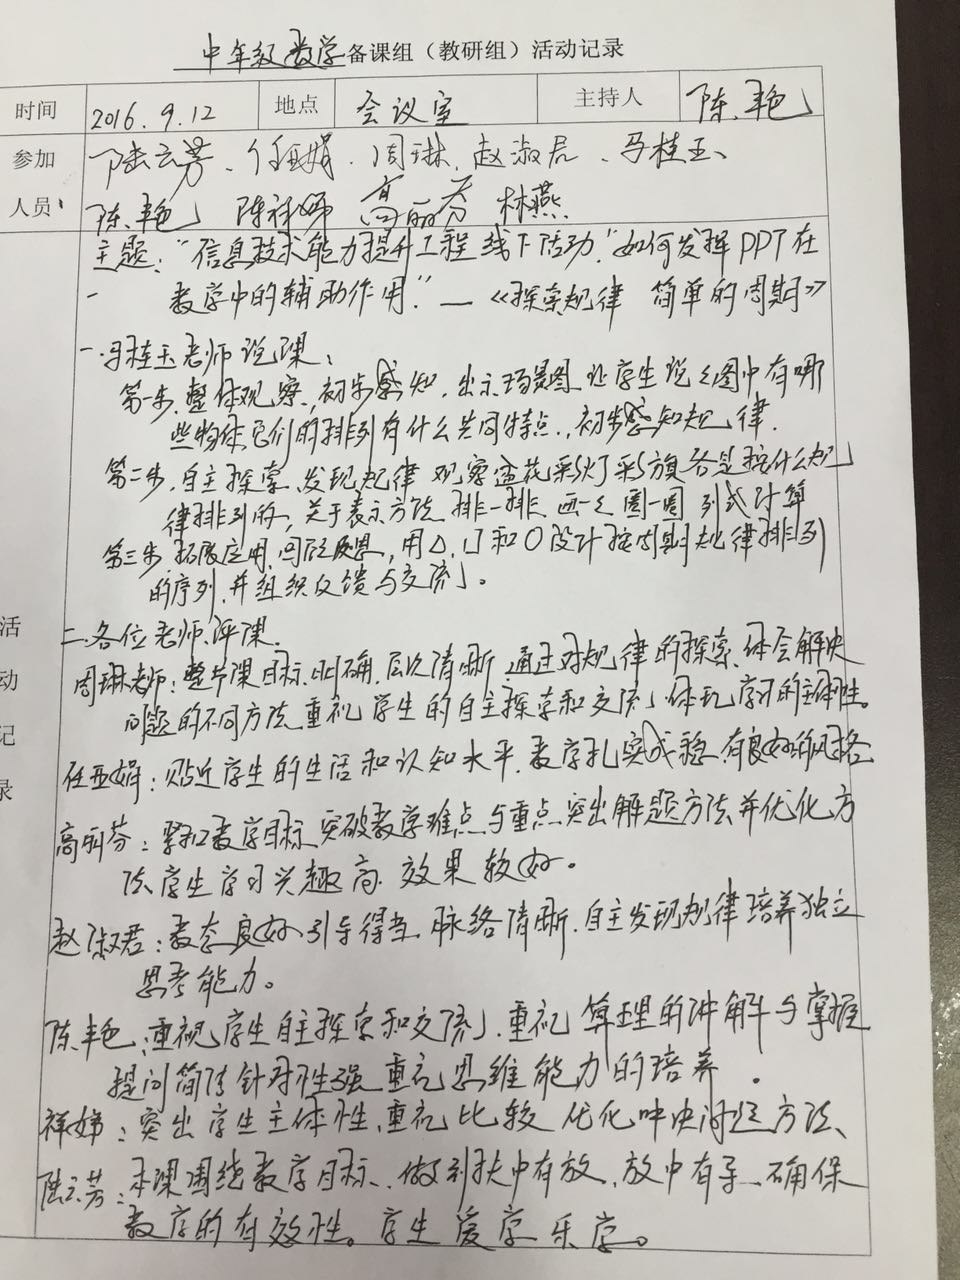 中年级数学备课组（教研组）活动记录
时间 2016.9.12 地点 会议室 主持人 陈丰艳
参加 陆云芳、任亚娟、周琳、赵淑君、马桂玉、
人员 陈丰艳 陈祥娣 高丽芬 林燕
主题："信息技术能力提升工程线下活动."如何发挥PPT在
教学中的辅助作用."—《探索规律 简单的周期》
一.马桂玉老师说课：
第一步.整体观察,初步感知,出示场景图 让学生说说图中有哪
些物体它们的排列有什么共同特点,初步感知规律.
第二步,自主探索、发现规律 观察盆花彩灯彩旗各是按什么规
律排列的,关于表示方法 排一排、画一画 圈一圈 列式计算
第三步 拓展应用,回顾反思,用△,口和○设计按周期规律排列
的序列,并组织反馈与交流。
二.各位老师评课.
周琳老师：整节课目标明确,层次清晰,通过对规律的探索,体会解决
问题的不同方法,重视学生的自主探索和交流,体现学习的主体性。
任亚娟：贴近学生的生活和认知水平.教学扎实成稳,有良好的风格
高丽芬：紧扣教学目标 突破教学难点与重点 突出解题方法并优化方
法 学生学习兴趣高.效果较好。
赵淑君：教态良好 引导得当 脉络清晰.自主发现规律培养独立
思考能力。
陈丰艳：重视学生自主探索和交流,重视算理的讲解与掌握
提问简洁针对性强 重视思维能力的培养.
祥娣：突出学生主体性,重视比较 优化解决问题方法、
陆云芳：本课围绕教学目标、做到扶中有放,放中有导 确保
教学的有效性。学生爱学乐学。
活
动
记
录